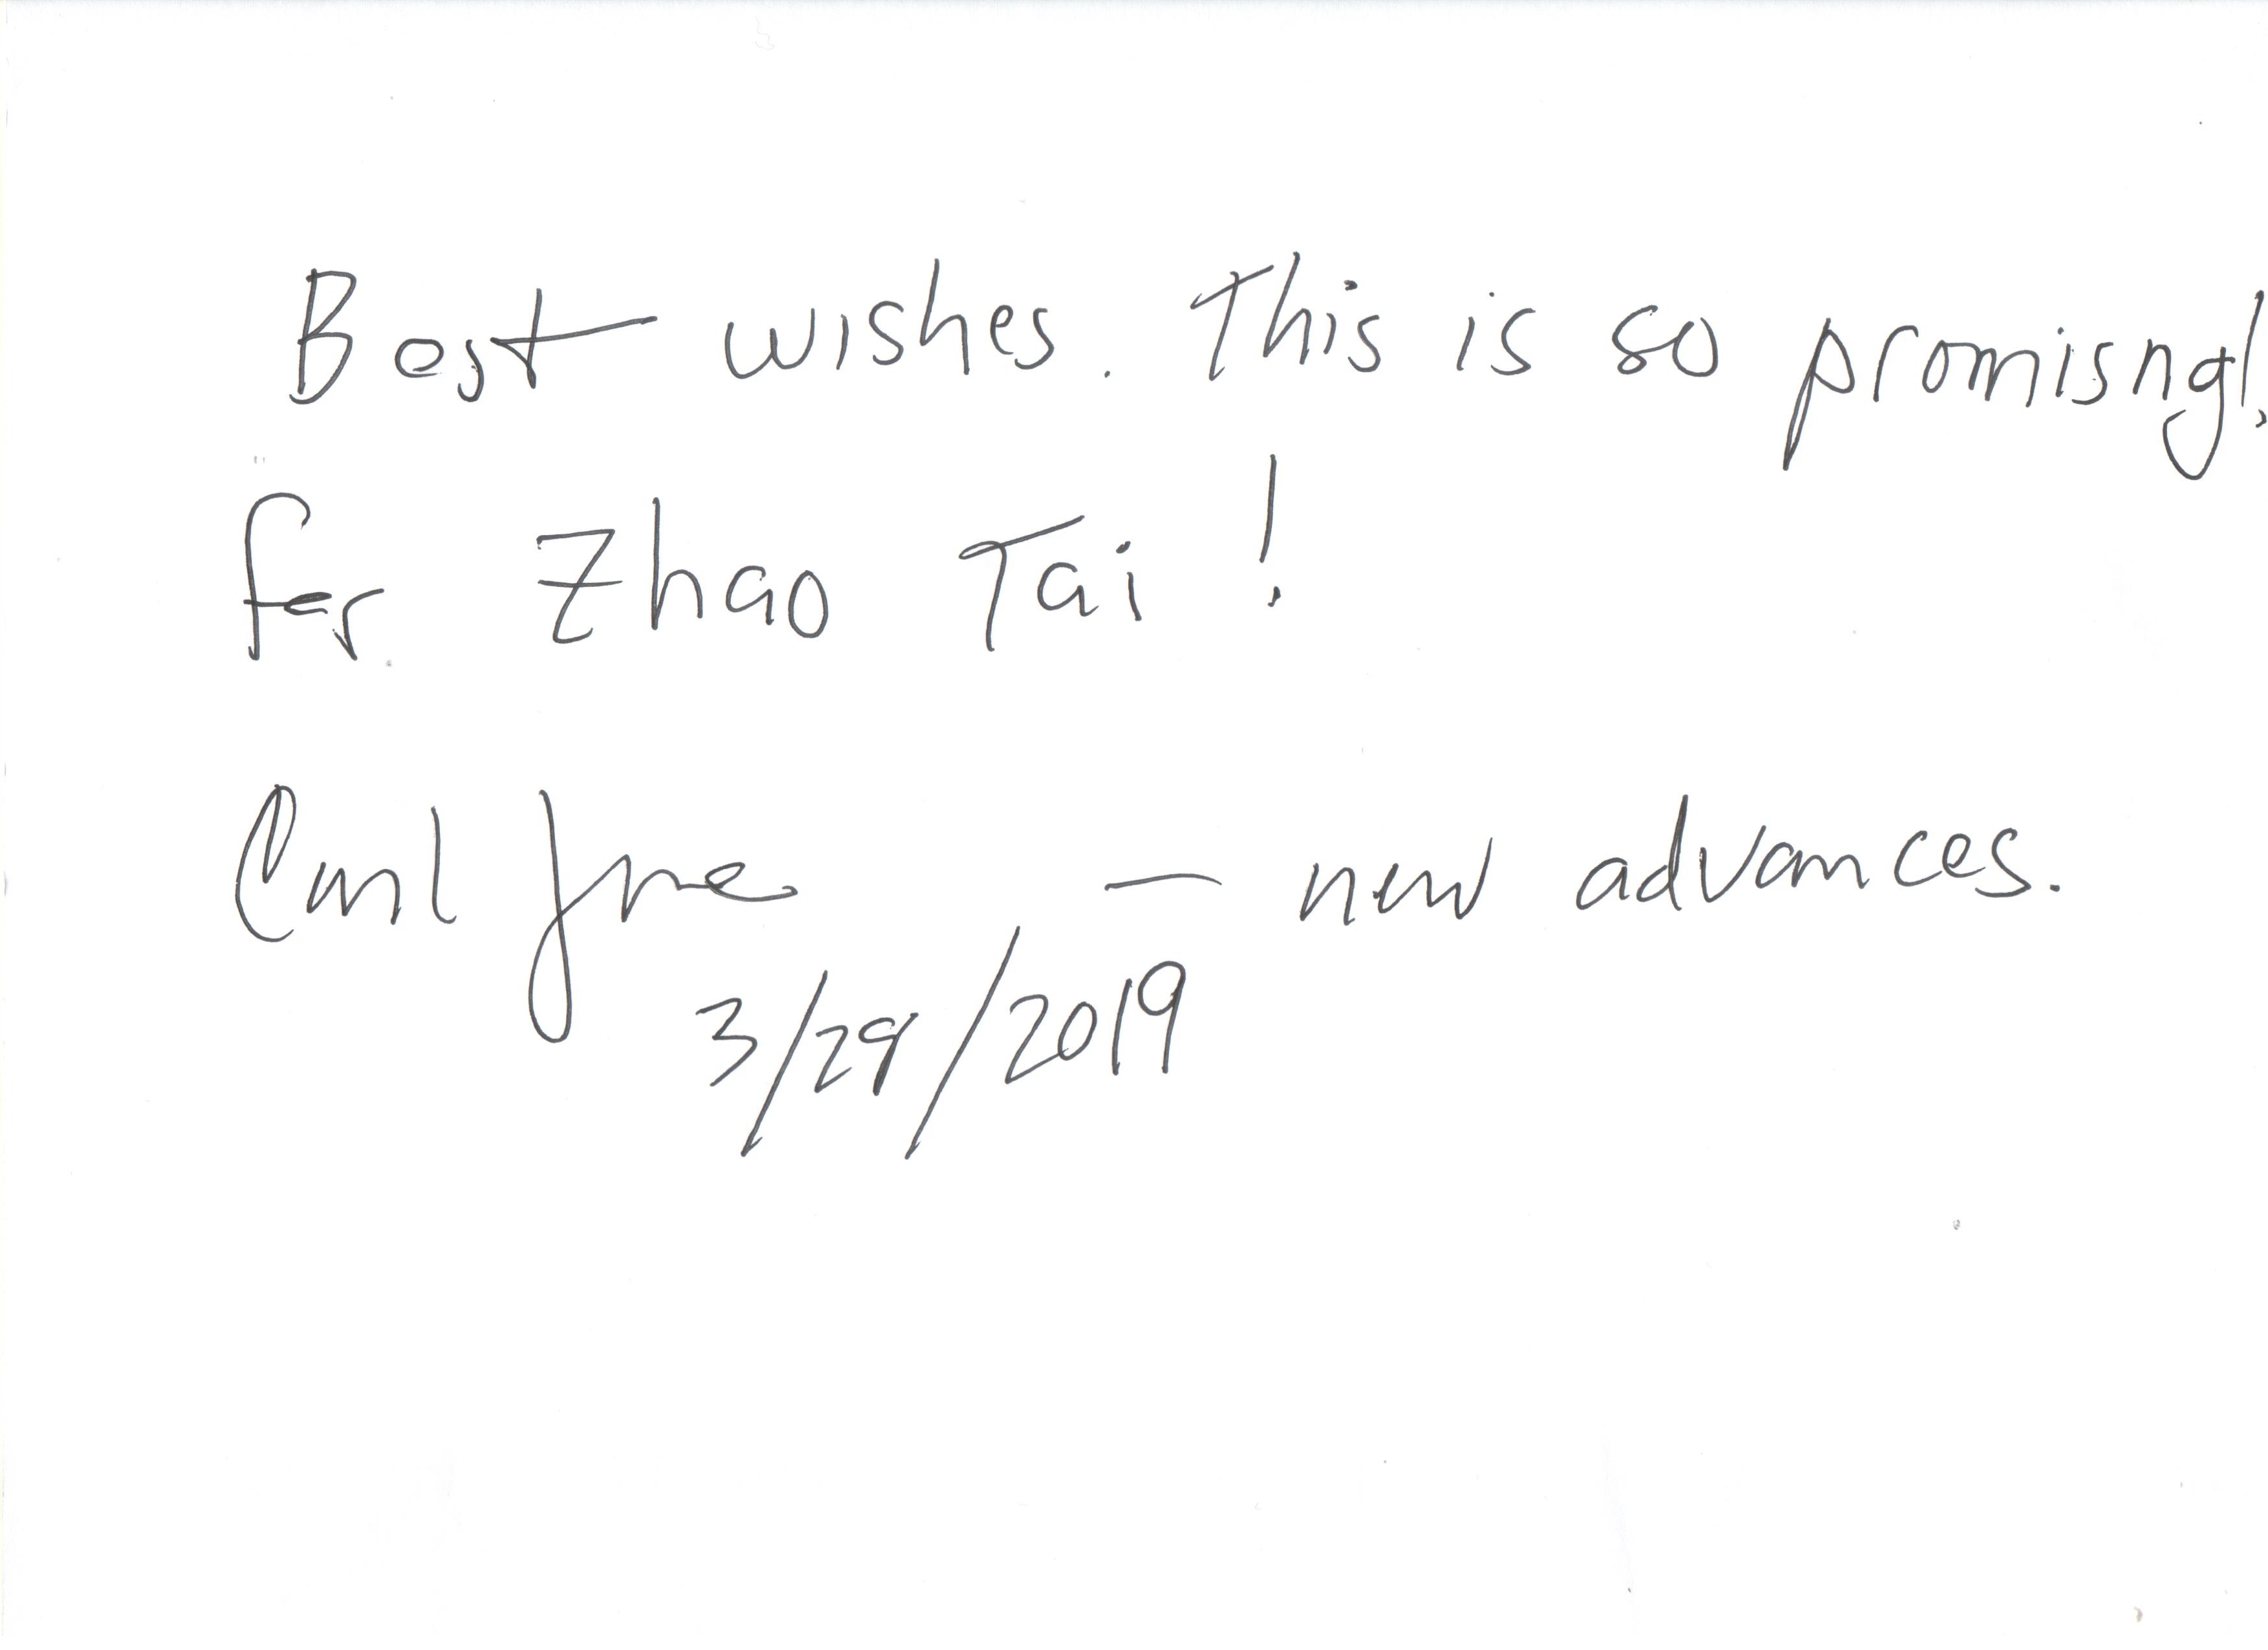 Best wishes. This is so promisng!
for Zhao Tai!
Carl June — new advances.
3/29/2019